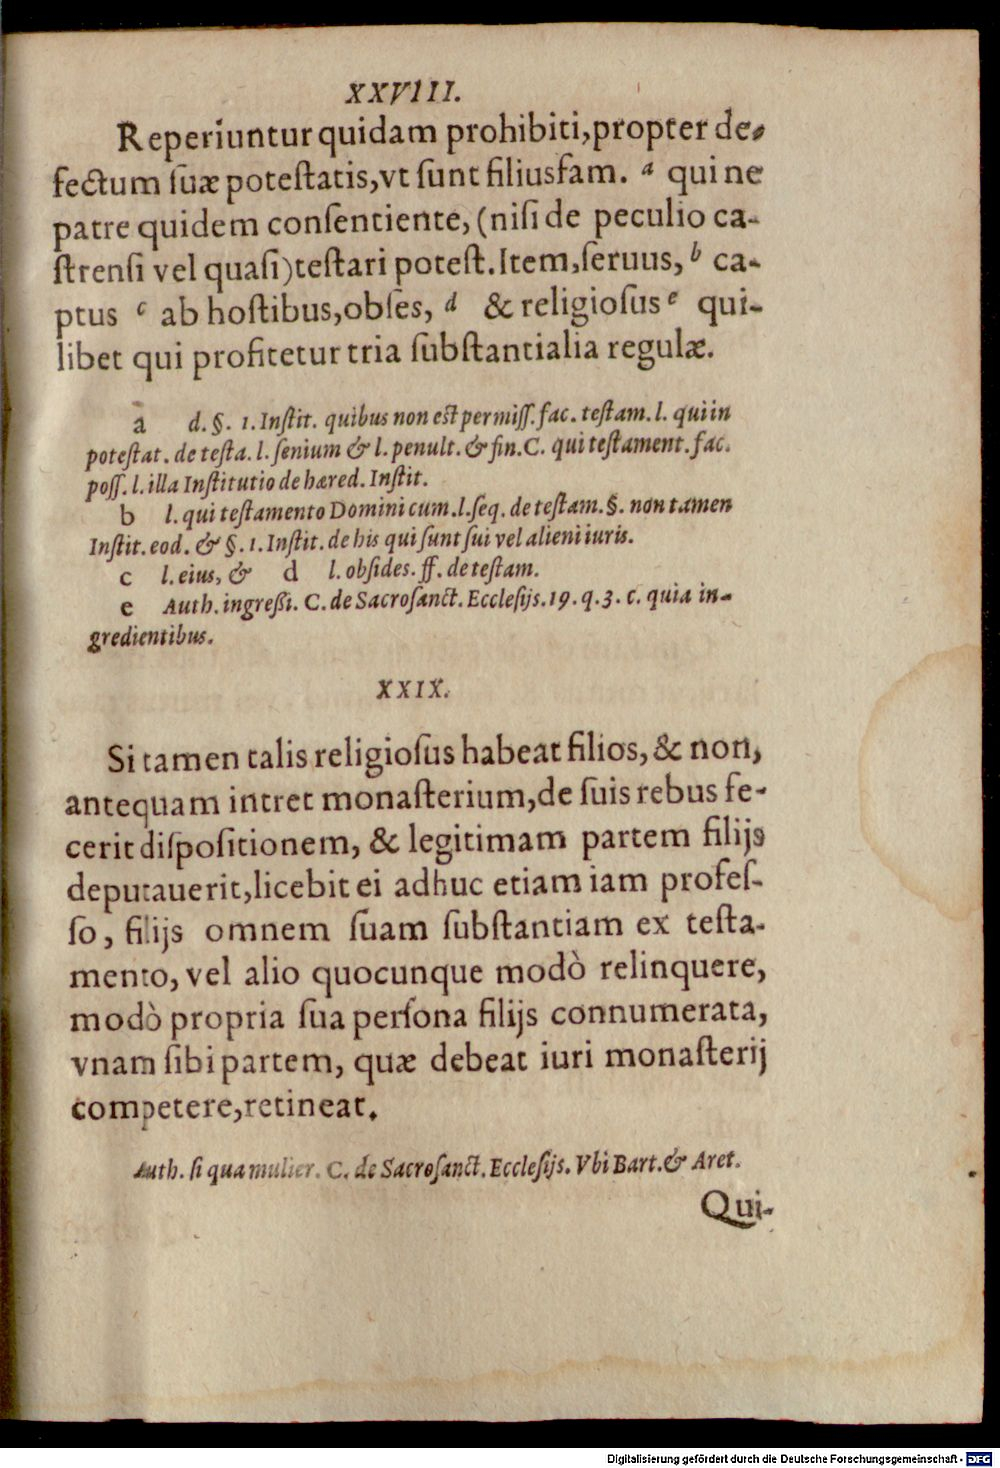 XXVIII.
Reperiuntur quidam prohibiti, propter de-
fectum suæ potestatis, vt sunt filiusfam. a qui ne
patre quidem consentiente, (nisi de peculio ca-
strensi vel quasi) testari potest. Item, seruus, b ca-
ptus c ab hostibus, obses, d & religiosus e qui-
libet qui profitetur tria substantialia regulæ.
a d. §. 1. Instit. quibus non est permiss. fac. testam. l. qui in
potestat. de testa. l. senium & l. penult. & fin. C. qui testament. fac.
poss. l. illa Institutio de hæred. Instit.
b l. qui testamento Domini cum. l. seq. de testam. §. non tamen
Instit. eod. & §. 1. Instit. de his qui sunt sui vel alieni iuris.
c l. eius, & d l. obsides. ff. de testam.
e Auth. ingressi. C. de Sacrosanct. Ecclesijs. 19. q. 3. c. quia in-
gredientibus.
XXIX.
Si tamen talis religiosus habeat filios, & non,
antequam intret monasterium, de suis rebus fe-
cerit dispositionem, & legitimam partem filijs
deputauerit, licebit ei adhuc etiam iam profes-
so, filijs omnem suam substantiam ex testa-
mento, vel alio quocunque modò relinquere,
modò propria sua persona filijs connumerata,
vnam sibi partem, quæ debeat iuri monasterij
competere, retineat.
Auth. si qua mulier. C. de Sacrosanct. Ecclesijs. Vbi Bart. & Aret.
Qui-
Digitalisierung gefördert durch die Deutsche Forschungsgemeinschaft - DFG